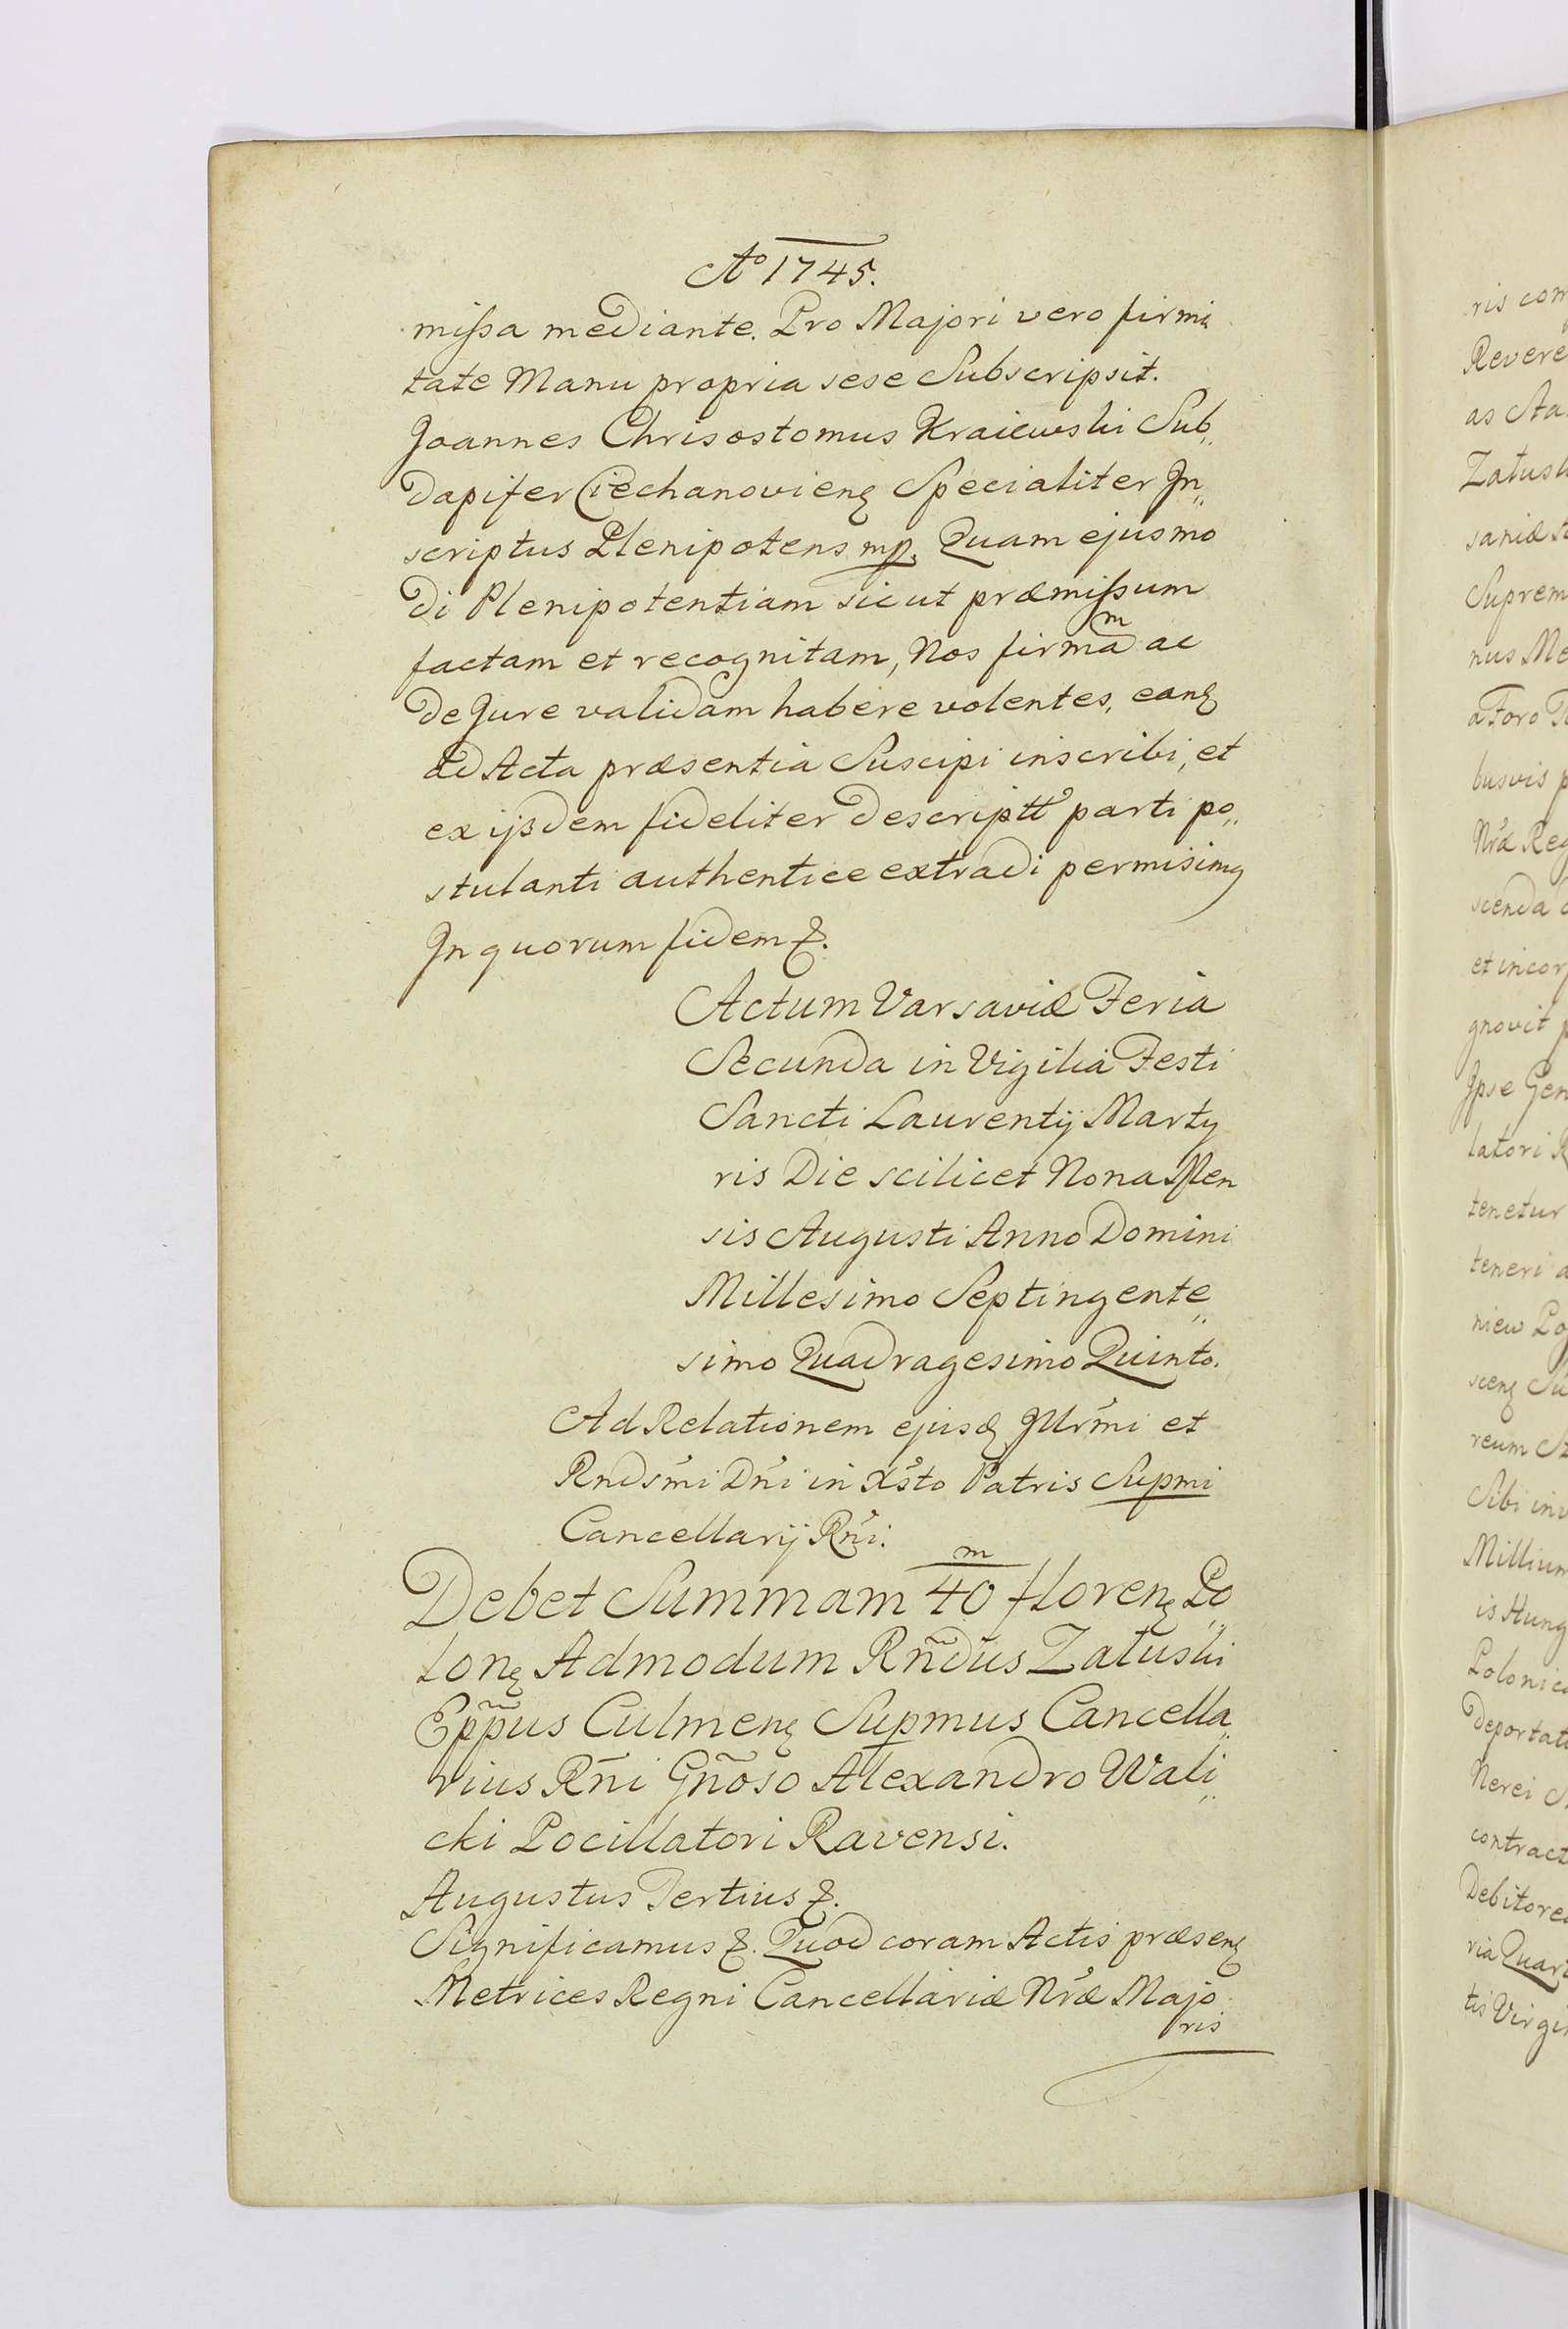 Aº 1745.
missa mediante. Pro Majori vero firmi
tate Manu propria sese Subscripsit.
Joannes Chrisostomus Kraiewski Sub„
dapifer Ciechanovienẹ Specialiter Jn„
scriptus Plenipotens mp. Quam ejusmo
di Plenipotentiam sicut præmissum
factam et recognitam, Nos firmaᵐ ac
de Jure validam habere volentes, eanẹ
ad Acta præsentia Suscipi inscribi, et
ex ijsdem fideliter descriptt parti po„
stulanti authentice extradi permisimꝰ
Jn quorum fidem &.
Actum Varsaviæ Feria
Secunda in Vigilia Festi
Sancti Laurentij Marty
ris Die scilicet Nona Men
sis Augusti Anno Domini
Millesimo Septingente„
simo Quadragesimo Quinto.
Ad Relationem ejusdẹ Jllrmi et
Rndsmi Dni in Xsto Patris Supmi
Cancellarij Rni.
Debet Summam 40ᵐ florenẹ Po„
lonẹ Admodum Rñdus Załuski
Epp̃us Culmenẹ Supmus Cancella„
rius Rñi Gñoso Alexandro Wali„
cki Pocillatori Ravensi.
Augustus Tertius &.
Significamus &. Quod coram Actis præsenẹ
Metrices Regni Cancellariæ Nræ Majo
ris
ris com
Revere
as Aa
Załusk
Suprem
nus Me
a Foro
busvis p
Nræ Reg
scenda
et incor
gnovit p
Jpse Gen
latori R
tenetur
teneri a
niew
Sibi inv
Millium
is Hung
Polonica
Deportat
Nerei
contract
Debitore
ria Quar
tis Virgi